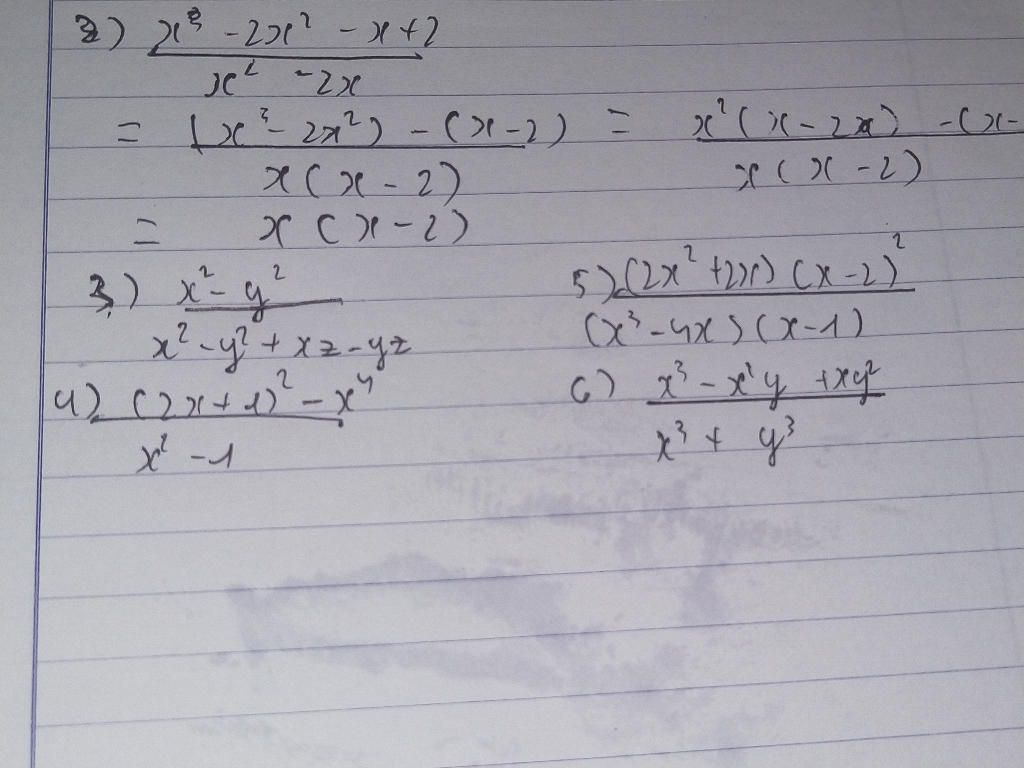 2) (x³ - 2x² - x + 2)/(x² - 2x)
= ((x³ - 2x²) - (x - 2))/(x(x - 2)) = (x²(x - 2x) - (x-)/(x(x - 2))
= x(x - 2)
3.) (x² - y²)/(x² - y² + xz - yz)
4) ((2x + 1)² - x⁴)/(x² - 1)
5) ((2x² + 2x)(x - 2)²)/((x³ - 4x)(x - 1))
6) (x³ - x²y + xy²)/(x³ + y³)